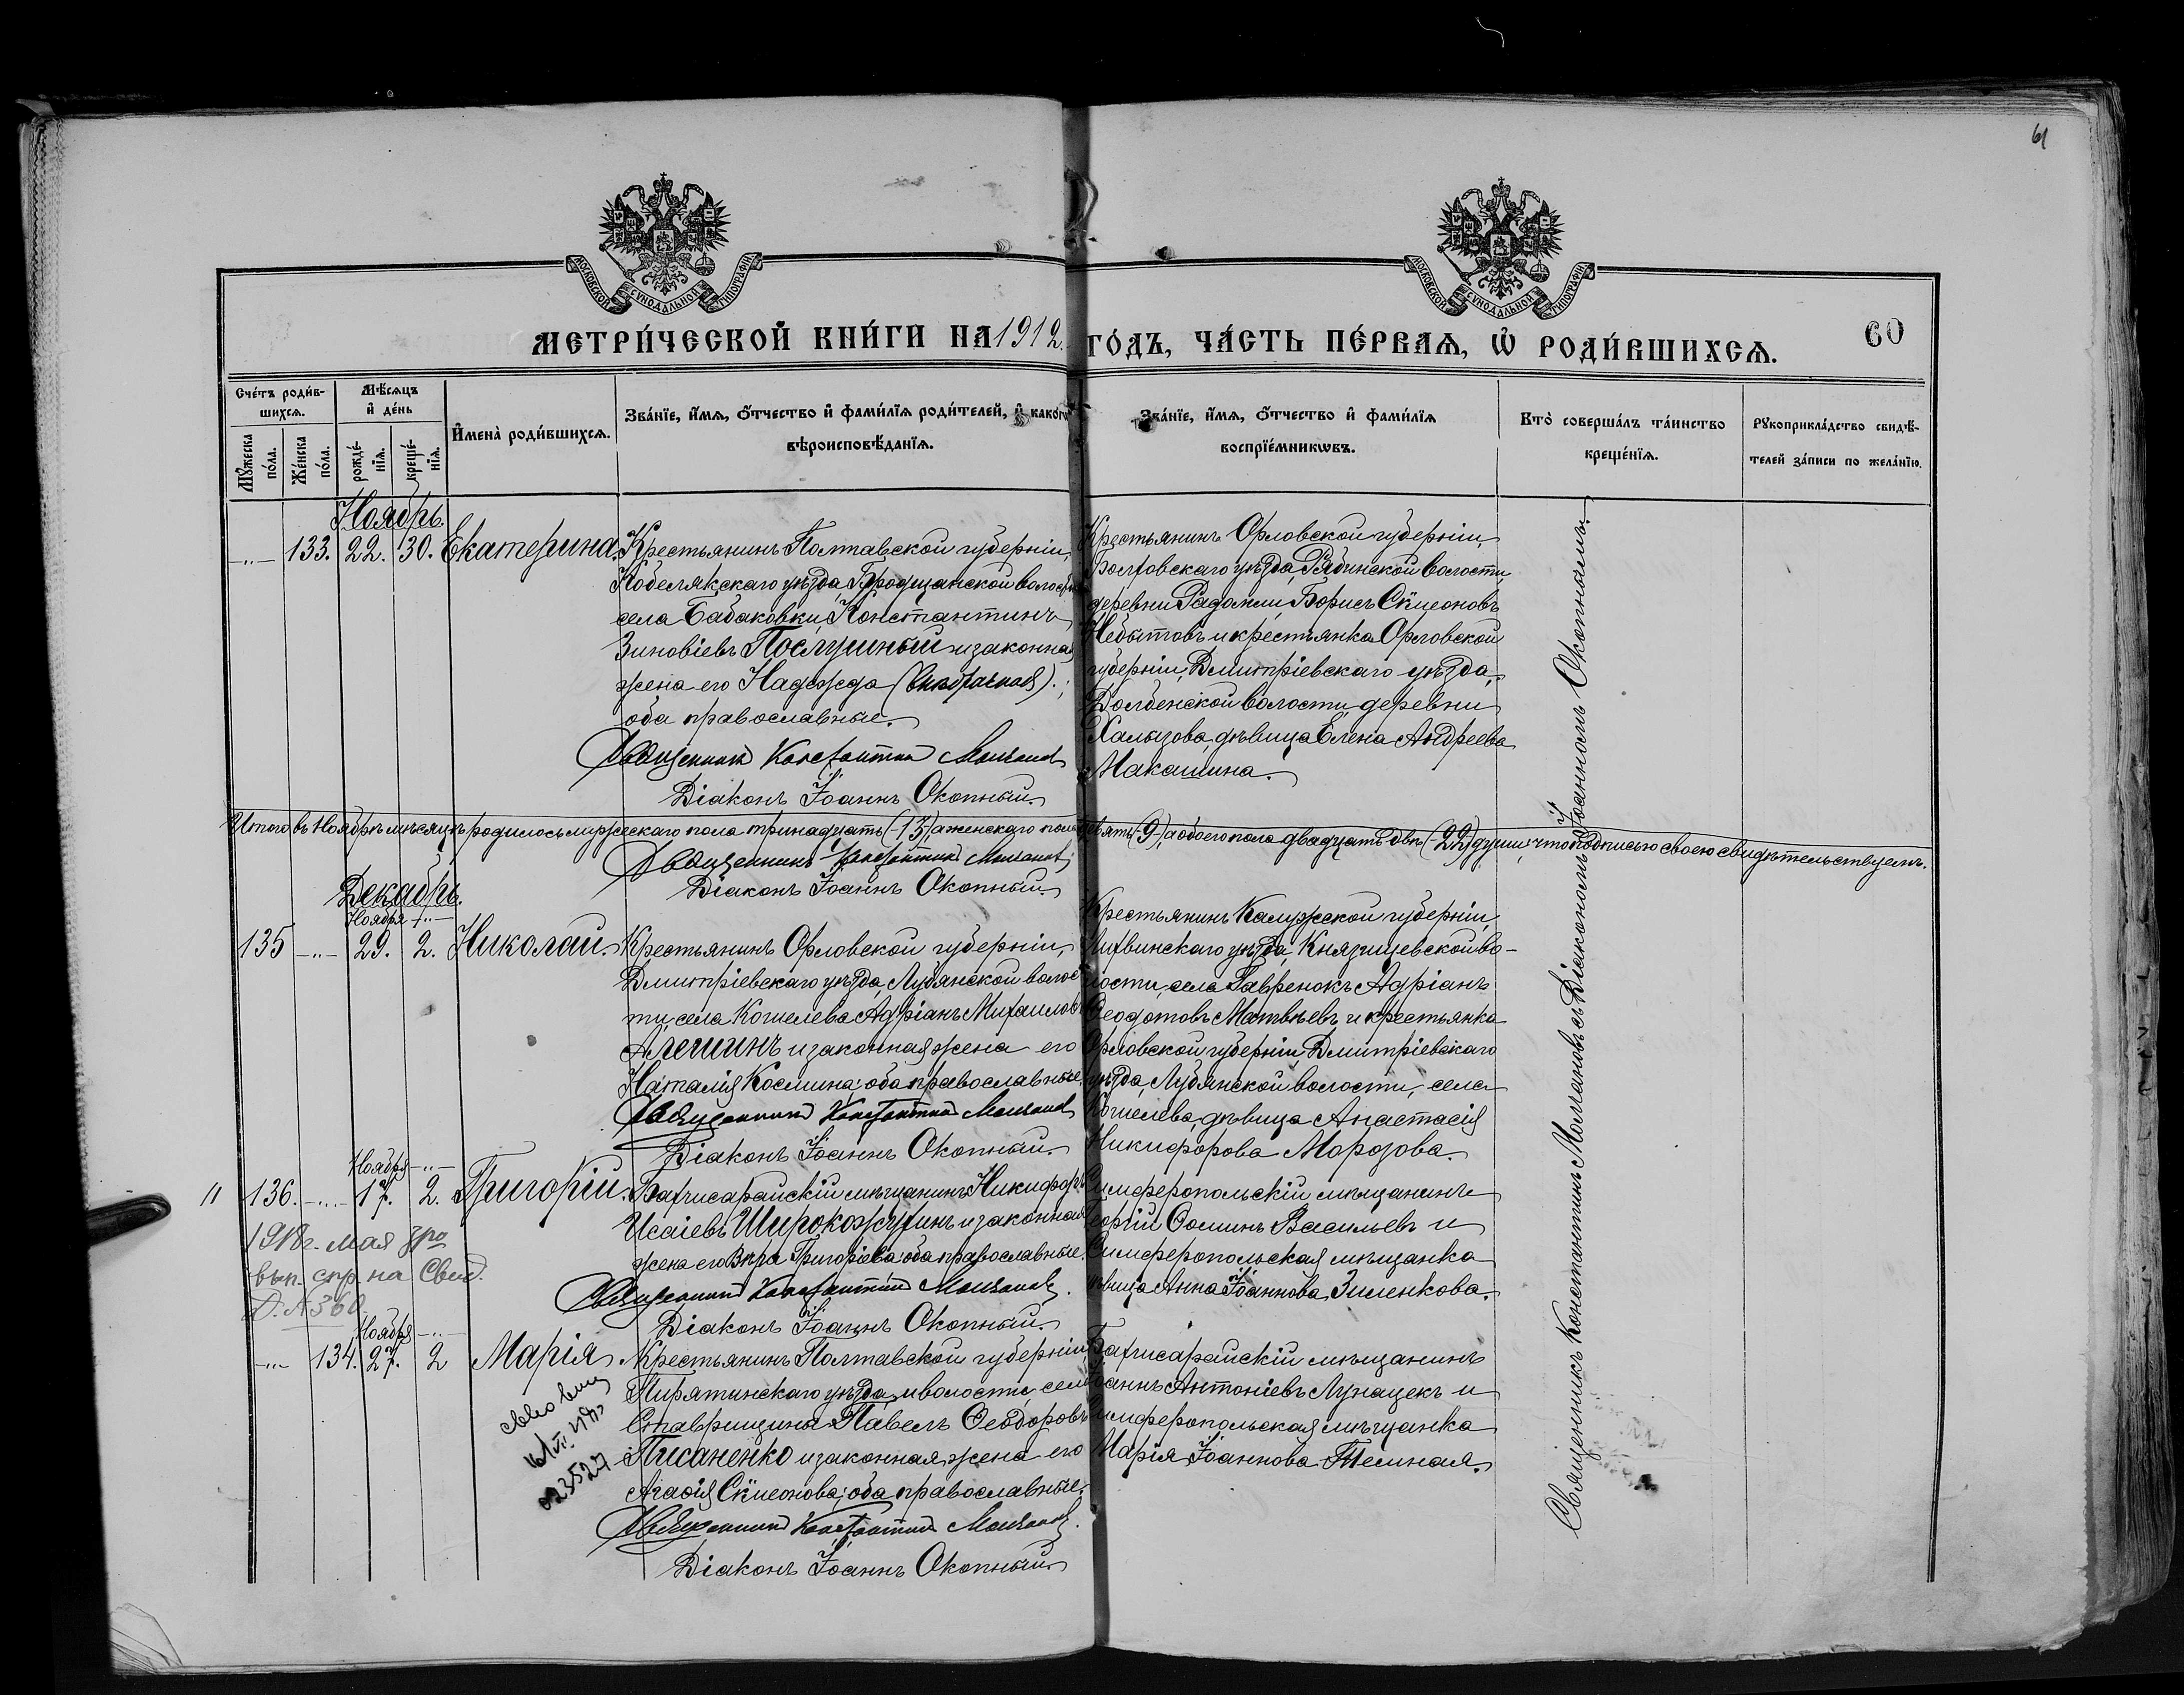 61
МОСКОВСКОЙ СУНОДАЛЬНОЙ ТИПОГРАФІИ.
МОСКОВСКОЙ СУНОДАЛЬНОЙ ТИПОГРАФІИ.
МЕТРИ́ЧЕСКОЙ КНИ́ГИ НА 1912. ГО́ДЪ, ЧА́СТЬ ПЕ́РВАЯ, Ѡ РОДИ́ВШИХСЯ.
60
Сче́тъ роди́вшихся.
Мѣ́сяцъ и де́нь
Мꙋ́жеска по́ла.
Же́нска по́ла.
рожде́нїѧ.
креще́нїѧ.
Имена̀ роди́вшихсѧ.
Зва́нїе, и́мѧ, ѻ́тчество и фами́лїѧ роди́телей, и како́гѡ
вѣроисповѣ́данїѧ.
Зва́нїе, и́мѧ, ѻ́тчество и фами́лїѧ
воспрїе́мникѡвъ.
Кто̀ соверша́лъ та́инство
креще́нїѧ.
Рꙋкоприкла́дство свидѣ́-
телей за́писи по жела́нїю.
Ноябрь.
-"- 133. 22. 30. Екатерина.
Крестьянинъ Полтавской губерніи,
Кобелякскаго уѣзда, Бродщанской волости
села Бабаковки, Константинъ
Зиновіевъ Послушный и законная
жена его Надежда
оба православные.
Священникъ Константинъ Молчановъ
Діаконъ Іоаннъ Окопный.
Крестьянинъ Орловской губерніи,
Болховскаго уѣзда, Рядинской волости,
деревни Радомли, Борисъ Сѵмеоновъ
Небытовъ и крестьянка Орловской
губерніи, Дмитріевскаго уѣзда,
Долбенской волости, деревни
Хальзова, дѣвица Елена Андреева
Макашина.
Итого въ Ноябрѣ мѣсяцѣ родилось мужескаго пола тринадцать (-13-) а женскаго пола девять (-9-), а обоего пола двадцать двѣ (-22-) души, что подписью своею свидѣтельствуемъ.
Священникъ Константинъ Молчановъ
Діаконъ Іоаннъ Окопный.
Декабрь.
Ноября -"-
135 -"- 29. 2. Николай.
Крестьянинъ Орловской губерніи,
Дмитріевскаго уѣзда, Лубянской волос
ти, села Кошелева Адріанъ Михаиловъ
Алешинъ и законная жена его
Наталія Космина; оба православные.
Священникъ Константинъ Молчановъ
Діаконъ Іоаннъ Окопный.
Крестьянинъ Калужской губерніи,
Лихвинскаго уѣзда, Княгищевской во-
лости, села Гавренокъ Адріанъ
Ѳеодотовъ Матвѣевъ и крестьянка
Орловской губерніи, Дмитріевскаго
уѣзда, Лубянской волости, села
Кошелева, дѣвица Анастасія
Никифорова Морозова.
Ноября -"-
" 136. -"- 17. 2. Григорій.
Бахчисарайскій мѣщанинъ Никифоръ
Исаіевъ Широкожухинъ и законная
жена его Вѣра Григоріева; оба православные.
Священникъ Константинъ Молчановъ.
Діаконъ Іоаннъ Окопный.
Симферопольскій мѣщанинъ
еоргій Ѳоминъ Васильевъ и
Симферопольская мѣщанка
дѣвица Анна Іоаннова Зиленкова.
1918 г. мая 3го
вып. спр. на Свид.
№ 360
Ноября -"-
-"- 134. 27. 2 Марія.
Крестьянинъ Полтавской губерніи,
Пирятинскаго уѣзда, и волости, села
Ставрищина Павелъ Ѳеодоровъ
Писаненко и законная жена его
Агаѳія Сѵмеонова; оба православные.
Священникъ Константинъ Молчановъ.
Діаконъ Іоаннъ Окопный.
Бахчисарайскій мѣщанинъ
Іоаннъ Антоніевъ Лунацекъ и
Симферопольская мѣщанка
Марія Іоаннова Темная.
023527
Священникъ Константинъ Молчановъ съ Діакономъ Іоанномъ Окопнымъ.